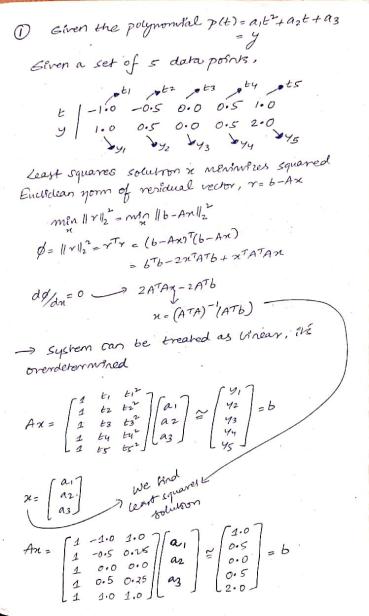 ① Given the polynomial p(t) = a₁t² + a₂t + a₃
= y
Given a set of 5 data points,
t₁ t₂ t₃ t₄ t₅
t | -1.0 -0.5 0.0 0.5 1.0
y | 1.0 0.5 0.0 0.5 2.0
y₁ y₂ y₃ y₄ y₅
Least squares solution x minimizes squared
Euclidean norm of residual vector, r = b-Ax
min ||r||₂² = min ||b-Ax||₂²
x x
φ = ||r||₂² = rᵀr = (b-Ax)ᵀ(b-Ax)
= bᵀb - 2xᵀAᵀb + xᵀAᵀAx
dφ/dx = 0 → 2AᵀAx - 2Aᵀb
x = (AᵀA)⁻¹(Aᵀb)
→ System can be treated as linear, it's
overdetermined
Ax = [1 t₁ t₁² [a₁ ≅ [y₁ = b
1 t₂ t₂² a₂ y₂
1 t₃ t₃² a₃] y₃
1 t₄ t₄² y₄
1 t₅ t₅²] y₅]
x = [a₁ a₂ a₃]
we find
least squares
solution
Ax = [1 -1.0 1.0 [a₁ ≅ [1.0 = b
1 -0.5 0.25 a₂ 0.5
1 0.0 0.0 a₃] 0.0
1 0.5 0.25 0.5
1 1.0 1.0] 2.0]